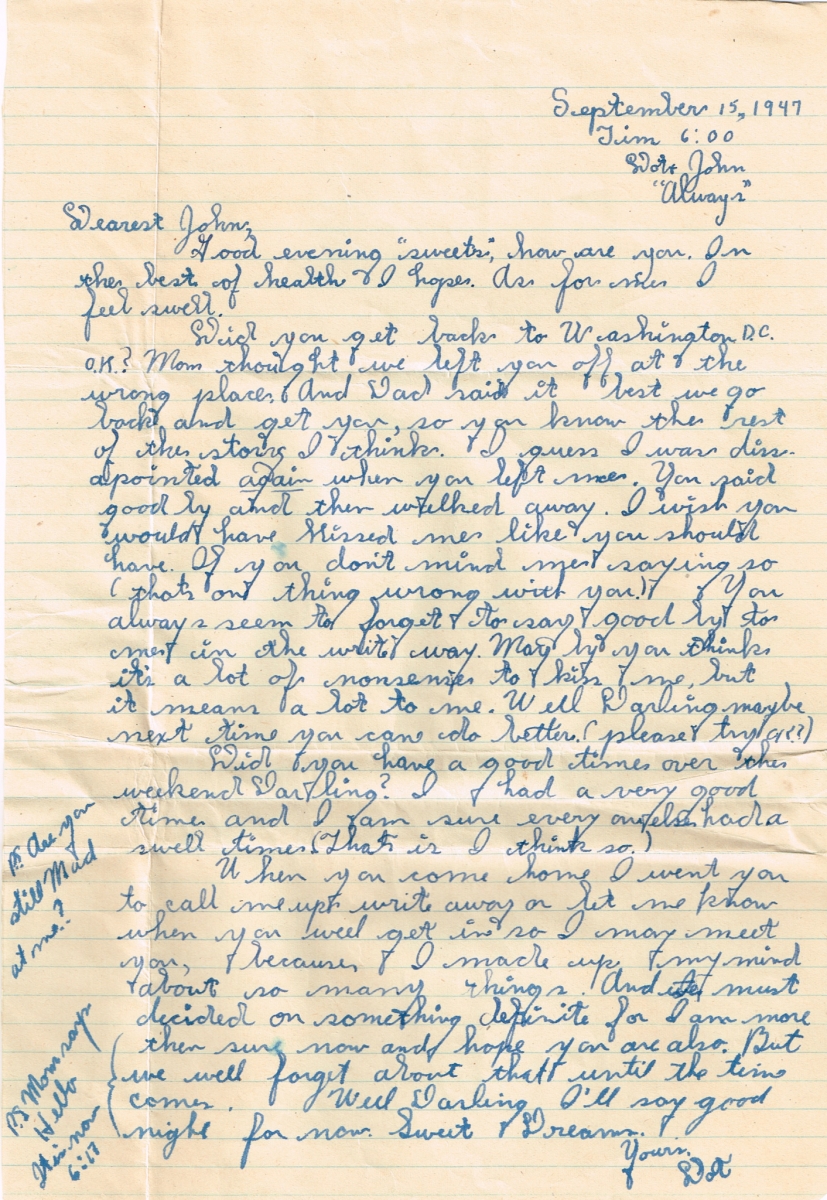 September 15, 1947
Tim 6:00
Dot + John
"Always"
Dearest John,
Good evening "sweets", how are you. In
the best of health I hope. As for me I
feel swell.
Did you get back to Washington D.C.
O.K.? Mom thought we left you off at the
wrong place. And Dad said it best we go
back and get you, so you know the rest
of the story I think. I guess I was diss-
apointed again when you left me. You said
good by and then walked away. I wish you
would have kissed me like you should
have. If you don't mind me saying so
(thats on thing wrong with you!) You
always seem to forget to say good by to
me in the write way. May by you think
it's a lot of nonsense to kiss me, but
it means a lot to me. Well Darling maybe
next time you can do better. (please try
Did you have a good time over the
weekend Darling? I had a very good
time and I am sure every one else had a
swell time. (That is I think so.)
When you come home I went you
to call me up write away or let me know
when you well get in so I may meet
you, because I made up my mind
about so many things. And must
decided on something definite for I am more
then sure now and hope you are also. But
we well forget about that until the time
comes. Well Darling I'll say good
night for now. Sweet Dreams.
Yours.
Dot
P.S Are you
still Mad
at me?
P.S Mom says
Hello
It is now
6:17